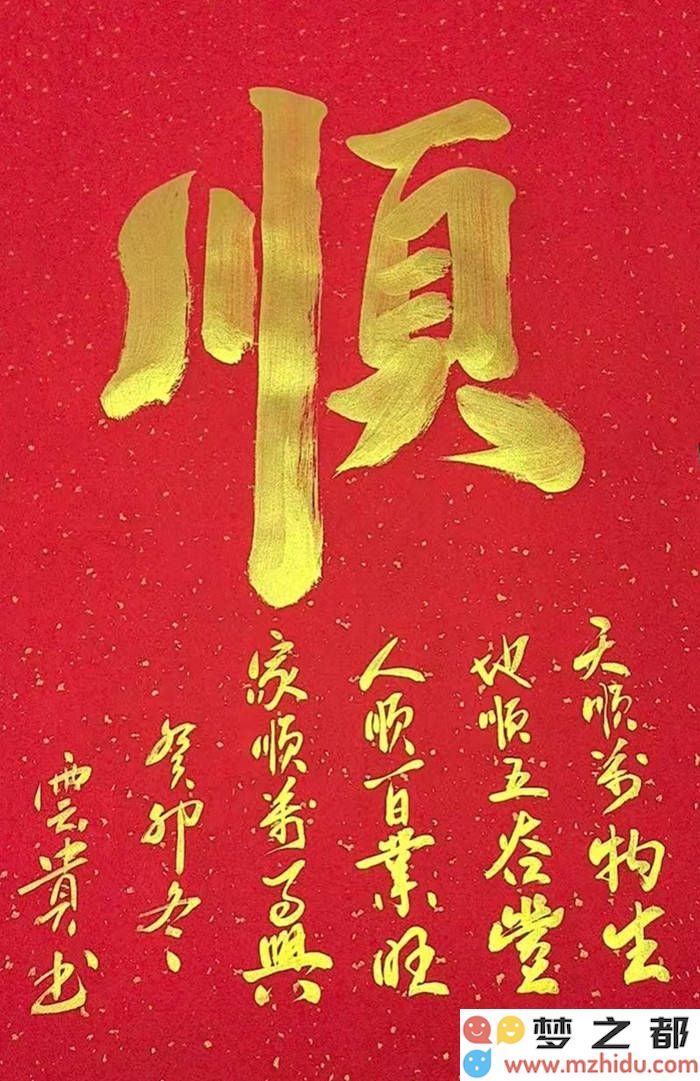 順
天順万物生
地順五谷豊
人順百業旺
家順万事興
癸卯冬
雲貴书
梦之都
www.mzhidu.com